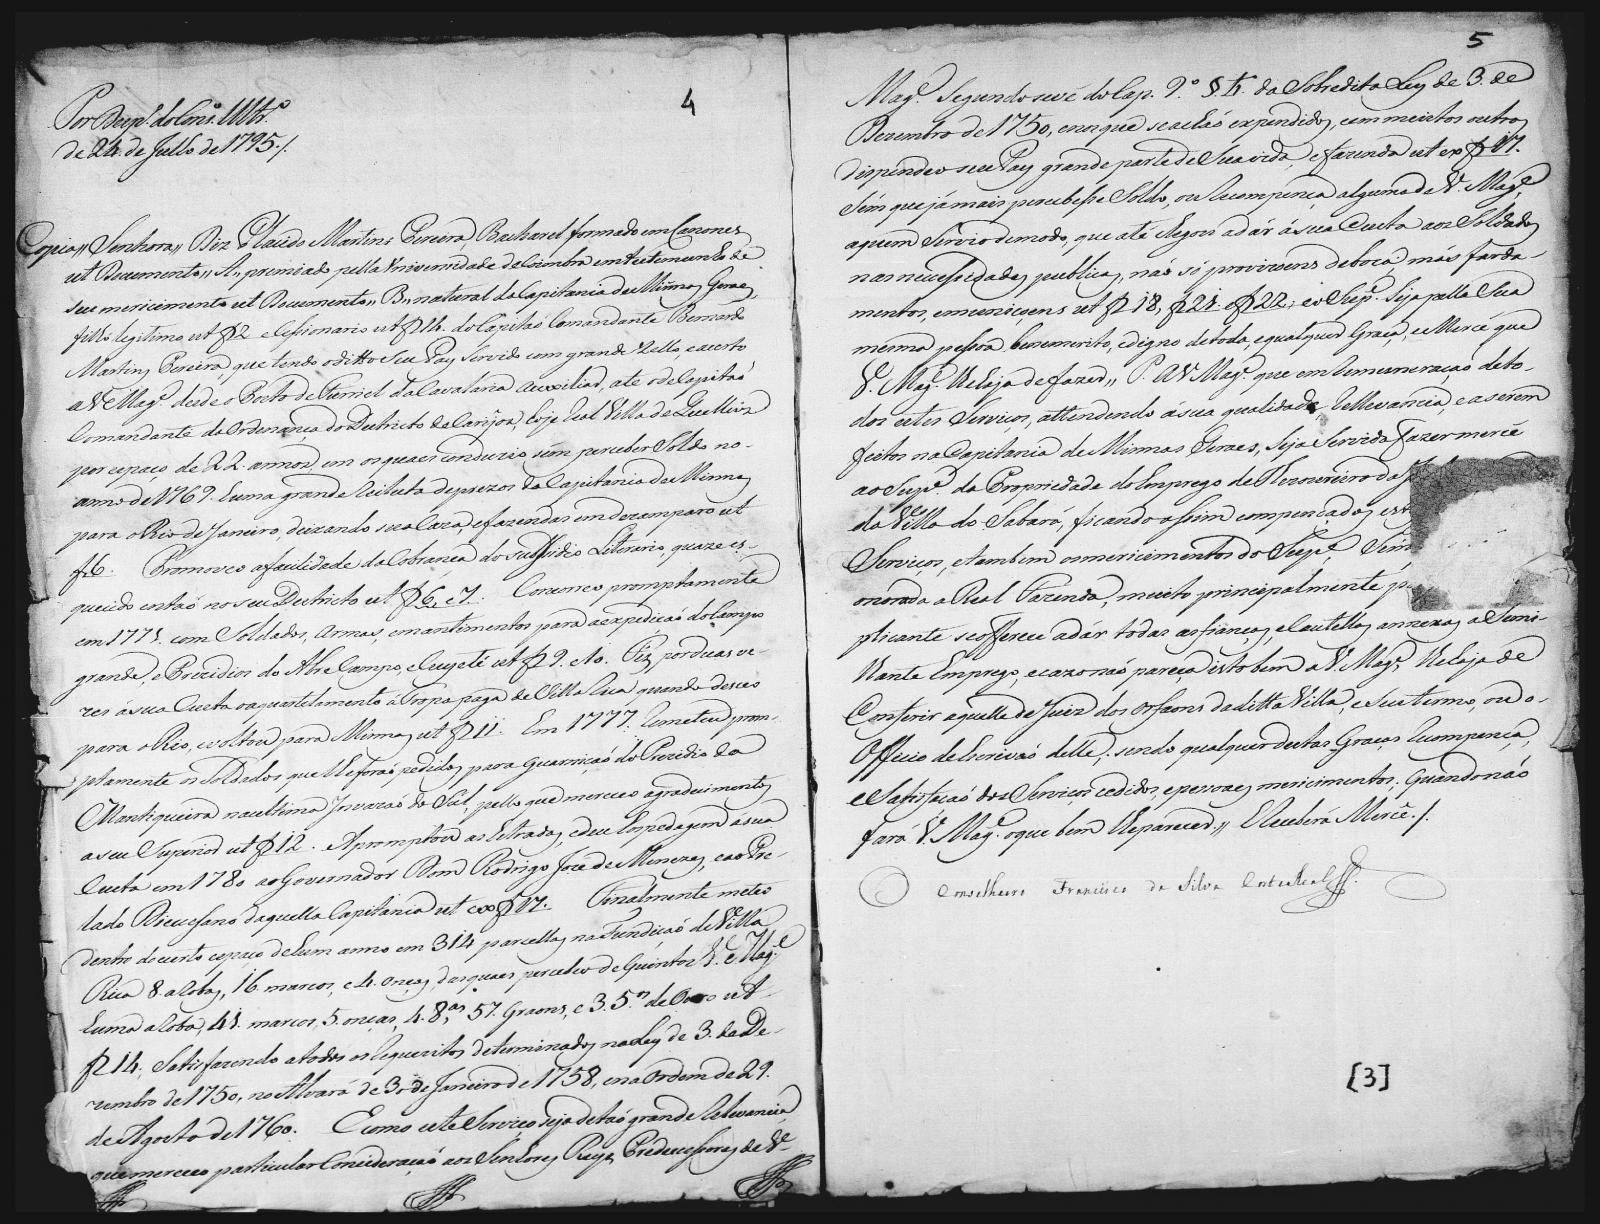 4
Por Desp.º do Cons.º Ultr.º
de 24. de Julho de 1795./.
Copia,, Senhora,, Diz Placido Martins Pereira, Bacharel formado em Canones
ut Documento,, A,, premiado pella Universidade de Coimbra em testemunho de
seu merecimento ut Documento,, B,, natural da Capitania de Minnas Geraes,
filho legitimo ut f2 e Cessionario ut f14. do Capitaõ Comandante Bernardo
Martins Pereira, que tendo o ditto seu Pay servido com grande zello, e acerto
a V. Mag.e desde o Posto de Furriel da Cavalaria Auxiliar, até o de Capitaõ
Comandante da Ordenança do Destricto de Carijós, hoje Real Villa de Queluz
por espaço de 22. annos, em os quaes conduzio sem perceber Soldo no
anno de 1769. huma grande Leituta de prezos da Capitania de Minnas
para o Rio de Janeiro, deixando sua Caza, e fazendas em dezemparo ut
f6. Promoveo a facilidade da Cobrança do subsidio Literario, quaze es-
quecido entaõ no seu Destricto ut f6, e 7. Concorreo promptamente
em 1771. com Soldados, armas, e mantimentos para a expediçaõ do Campo
grande, e Prezidios do Abre Campo, e Cuyeté ut f9. e 10. Fez por duas ve-
zes á sua Custa o aquartelamento á Tropa paga de Villa Rica quando desceo
para o Rio, e voltou para Minnas ut f11. Em 1777. remeteu prom-
ptamente os Soldados que lhe foraõ pedidos para guarniçaõ do Prezidio da
Mantiqueira na ultima Invazaõ do Sul, pello que mereceo agradecimentos
a seu Superior ut f12. Apromptou as Estradas, e deu hospedagem á sua
Custa em 1780 ao Governador Dom Rodrigo José de Menezes, e ao Pre-
lado Diecesano daquella Capitania ut ex f17. Finalmente meteo
dentro do certo espaço de hum anno em 314 parcellas na Fundiçaõ de Villa
Rica 8. arrobas, 16. marcos, e 4. onças, das quaes percebeo de Quintos V. Mag.e
huma arroba, 41. marcos, 5. onças, 4. 8.as 57. Graons, e 3. 5.os de Ouro ut
f14, satisfazendo a todos os requezitos determinados na Ley de 3. de De-
zembro de 1750, no Alvará de 3. de Janeiro de 1758, e na Ordem de 29.
de Agosto de 1760. E como este Serviço seja de taõ grande Relevancia,
que mereceo particular Consideraçaõ aos Senhores Reys, Predecessores de V.e
5
Mag.e Segundo se vê do Cap. 9.º §. 4. da Sobredita Ley de 3. de
Dezembro de 1750, e nos que se achaõ expendidos, com muitos outros
dispendeo seu Pay grande parte de Sua vida, e fazenda ut ex f17.
Sem que já mais percebesse Soldo, ou Recompença alguma de V. Mag.e,
a quem Servio de modo, que até chegou a dár á sua Custa aos Soldados
nas necessidades publicas, naõ só provizoens de boca, más farda-
mentos, e muniçoens ut f18, f21 e f22; e o Sup.e Seja pella Sua
mesma pessoa benemerito, e digno de toda, e qualquer Graça, e Mercê que
V. Mag.e Haja de fazer,, P. A V Mag.e que em Remuneraçaõ de to-
dos estes Serviços, attendendo á sua qualidade, Rellevancia, e a serem
feitos na Capitania de Minnas Geraes, Seja Servida fazer mercê
ao Sup.e da Propriedade do Emprego de Thezoureiro da
da Villa do Sabará, ficando assim compençados est
Serviços, e tambem os merecimentos do Sup.e Sem
onorada a Real Fazenda, muito principalmente
plicante se offerece a dár todas as fianças, e Cautellas annexas a Semi-
lhante Emprego, e cazo naõ pareça disto bem a V. Mag.e, Haja de
Conferir aquella de Juiz dos orfaons da ditta Villa, e seu termo, ou o
Officio de Escrivaõ delle; sendo qualquer destas Graças Recompença,
e Satisfaçaõ dos Serviços cedidos, e pessoaes merecimentos; quando naõ
fará V. Mag.e o que bem lhe parecer,, E Receberá Mercê./.
Conselheiro Francisco da Silva Corte Real
[3]